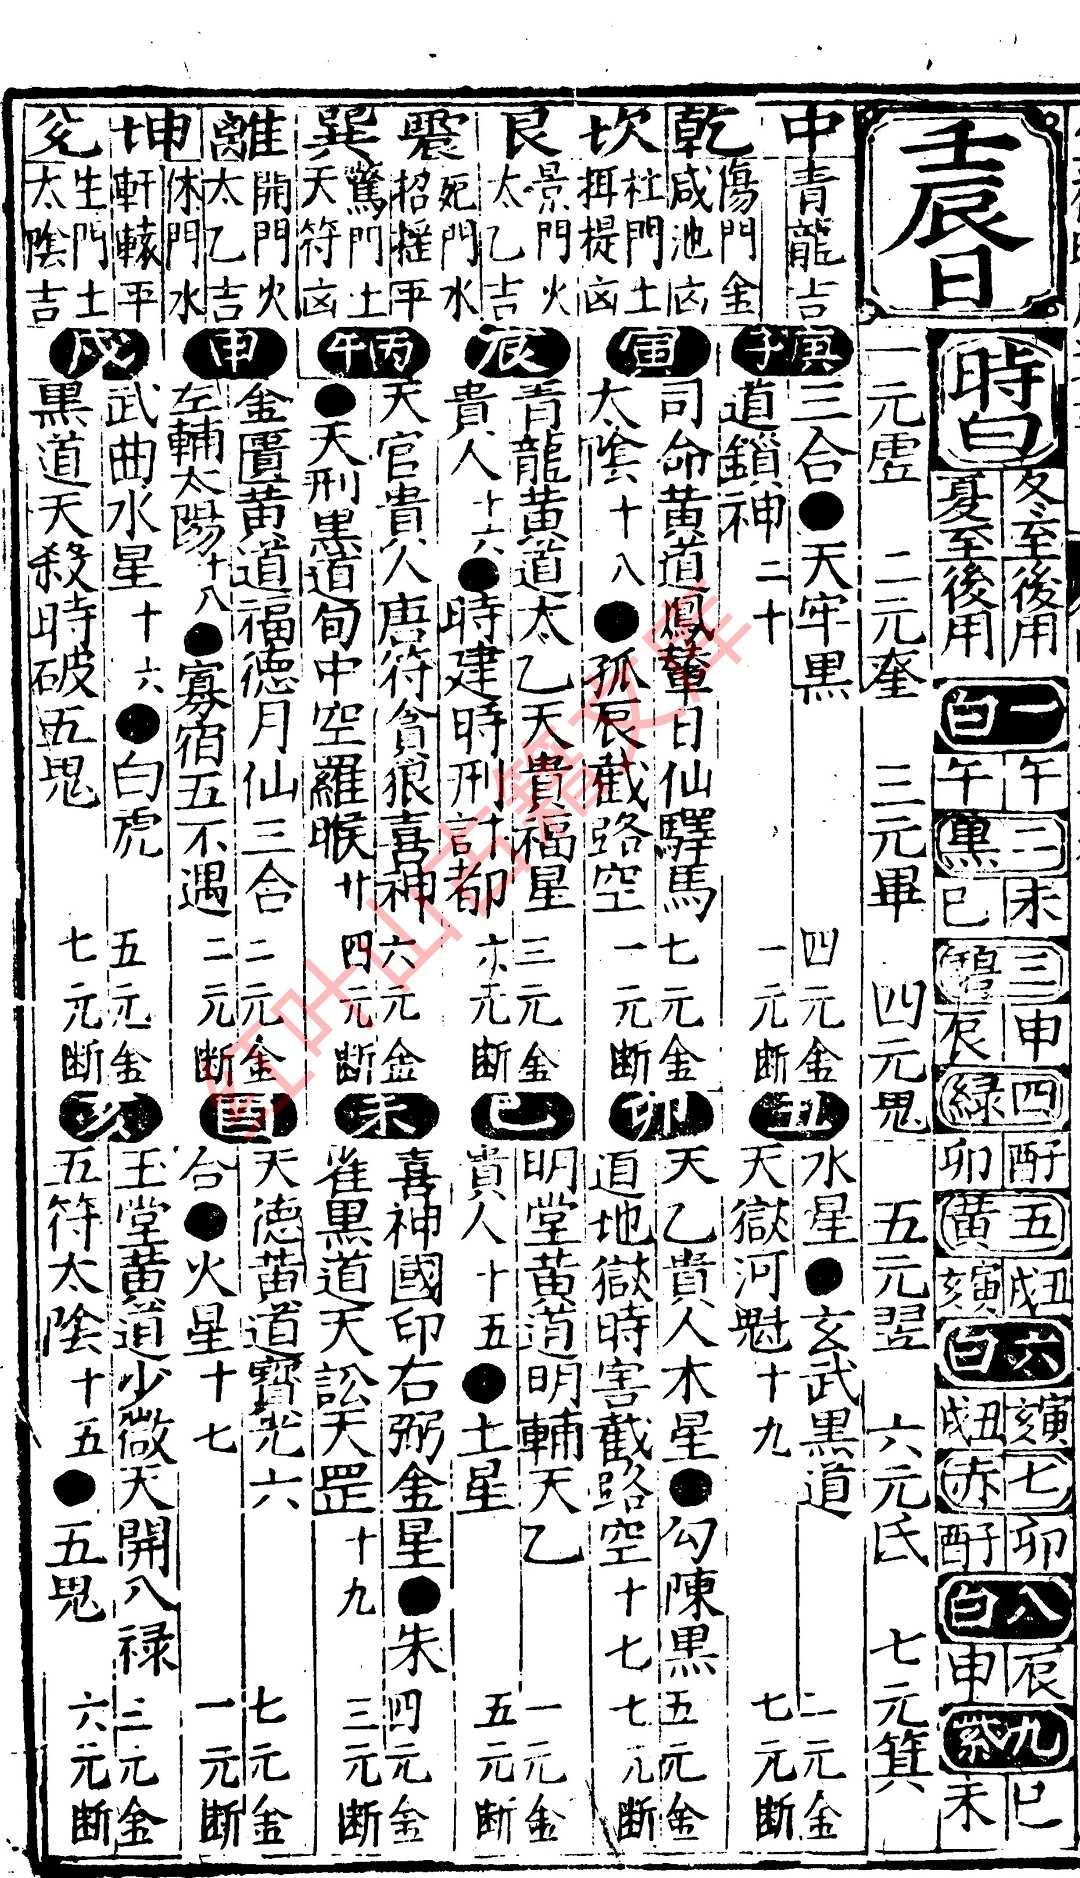 壬辰日
中
青龍吉
乾
傷門金
咸池凶
坎
杜門土
攝提凶
艮
景門火
太乙吉
震
死門水
招摇平
巽
驚門土
天符凶
離
開門火
太乙吉
坤
休門水
軒轅平
兌
生門土
太陰吉
時白
冬至後用
夏至後用
一白
午
午
二黑
未
巳
三碧
申
辰
四綠
酉子
卯
五黃
戌丑
亥寅
六白
亥寅
戌丑
七赤
卯
酉子
八白
辰
申
九紫
巳
未
一元虛 二元奎 三元畢 四元鬼 五元翌 六元氐 七元箕
庚子
三合●天牢黑 四元金
道鎖神二十 一元断
丑
水星●玄武黑道 二元金
天獄河魁十九 七元断
寅
司命黄道鳳輦日仙驛馬 七元金
太陰十八●孤辰截路空 一元断
卯
天乙貴人木星●勾陳黑 五元金
道地獄時害截路空十七 七元断
辰
青龍黄道太乙天貴福星 三元金
貴人十六●時建時刑計都 六元断
巳
明堂黄道明輔天乙 一元金
貴人十五●土星 五元断
丙午
天官貴人唐符貪狼喜神 六元金
●天刑黑道旬中空羅睺廿 四元断
未
喜神國印右弼金星●朱 四元金
雀黑道天訟天罡十九 三元断
申
金匱黄道福德月仙三合 二元金
左輔太陽十八●寡宿五不遇 二元断
酉
天德黄道寶光六 七元金
合●火星十七 一元断
戌
武曲水星十六●白虎 五元金
黑道天殺時破五鬼 七元断
亥
玉堂黄道少微天開八禄 二元金
五符太陰十五●五鬼 六元断
红叶山古籍文库